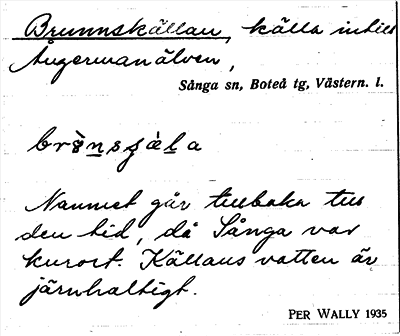 Brunnskällan, källa intill
Ångermanälven,
Sånga sn, Boteå tg, Västern. l.
Namnet går tillbaka till
den tid, då Sånga var
kurort. Källans vatten är
järnhaltigt.
PER WALLY 1935